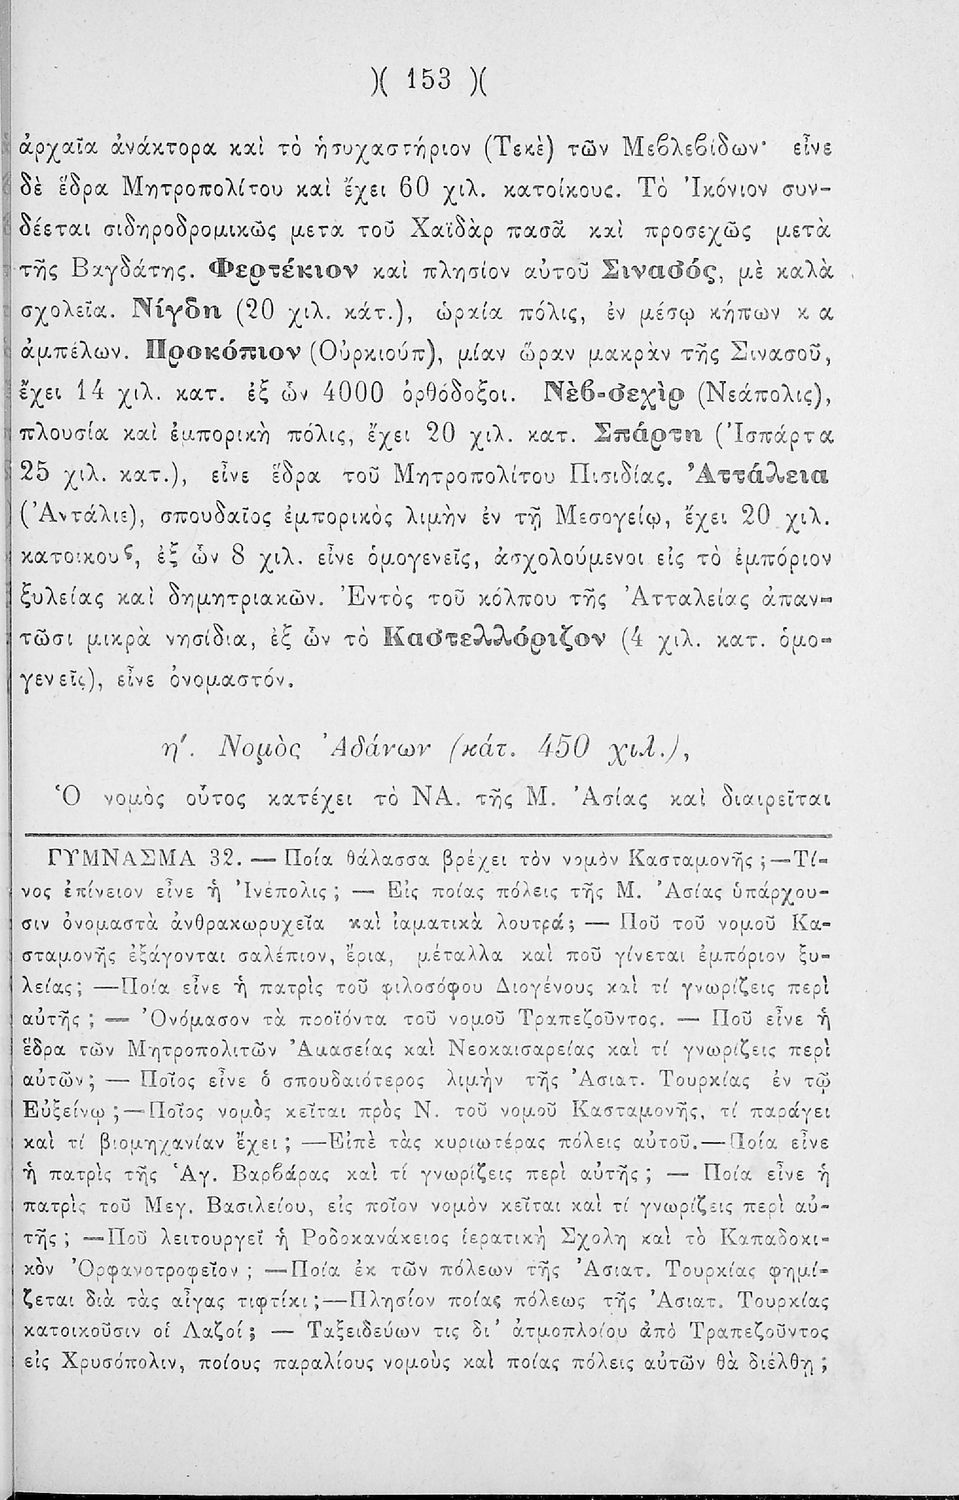 )( 153 )(
ἀρχαῖα ἀνάκτορα καὶ τὸ ἡσυχαστήριον (Τεκὲ) τῶν Μεβλεβίδων· εἶνε
δὲ ἕδρα Μητροπολίτου καὶ ἔχει 60 χιλ. κατοίκους. Τὸ Ἰκόνιον συν-
δέεται σιδηροδρομικῶς μετὰ τοῦ Χαϊδὰρ πασᾶ καὶ προσεχῶς μετὰ
τῆς Βαγδάτης. Φερτέκιον καὶ πλησίον αὐτοῦ Σινασός, μὲ καλὰ
σχολεῖα. Νίγδη (20 χιλ. κάτ.), ὡραία πόλις, ἐν μέσῳ κήπων κ α
ἀμπέλων. Προκόπιον (Οὐρκιούπ), μίαν ὥραν μακρὰν τῆς Σινασοῦ,
ἔχει 14 χιλ. κατ. ἐξ ὧν 4000 ὀρθόδοξοι. Νὲβ-σεχὶρ (Νεάπολις),
πλουσία καὶ ἐμπορικὴ πόλις, ἔχει 20 χιλ. κατ. Σπάρτη (Ἰσπάρτα
25 χιλ. κατ.), εἶνε ἕδρα τοῦ Μητροπολίτου Πισιδίας. Ἀττάλεια
(Ἀντάλιε), σπουδαῖος ἐμπορικὸς λιμὴν ἐν τῇ Μεσογείῳ, ἔχει 20 χιλ.
κατοικους, ἐξ ὧν 8 χιλ. εἶνε ὁμογενεῖς, ἀσχολούμενοι εἰς τὸ ἐμπόριον
ξυλείας καὶ δημητριακῶν. Ἐντὸς τοῦ κόλπου τῆς Ἀτταλείας ἀπαν-
τῶσι μικρὰ νησίδια, ἐξ ὧν τὸ Καστελλόριζον (4 χιλ. κατ. ὁμο-
γενεῖς), εἶνε ὀνομαστόν.
η'. Νομὸς Ἀδάνων (κάτ. 450 χιλ.),
Ὁ νομὸς οὗτος κατέχει τὸ ΝΑ. τῆς Μ. Ἀσίας καὶ διαιρεῖται
ΓΥΜΝΑΣΜΑ 32. — Ποία θάλασσα βρέχει τὸν νομὸν Κασταμονῆς ; — Τί-
νος ἐπίνειον εἶνε ἡ Ἰνέπολις ; — Εἰς ποίας πόλεις τῆς Μ. Ἀσίας ὑπάρχου-
σιν ὀνομαστὰ ἀνθρακωρυχεῖα καὶ ἰαματικὰ λουτρά; — Ποῦ τοῦ νομοῦ Κα-
σταμονῆς ἐξάγονται σαλέπιον, ἔρια, μέταλλα καὶ ποῦ γίνεται ἐμπόριον ξυ-
λείας ; — Ποία εἶνε ἡ πατρὶς τοῦ φιλοσόφου Διογένους καὶ τί γνωρίζεις περὶ
αὐτῆς ; — Ὀνόμασον τὰ προϊόντα τοῦ νομοῦ Τραπεζοῦντος. — Ποῦ εἶνε ἡ
ἕδρα τῶν Μητροπολιτῶν Ἀμασείας καὶ Νεοκαισαρείας καὶ τί γνωρίζεις περὶ
αὐτῶν ; — Ποῖος εἶνε ὁ σπουδαιότερος λιμὴν τῆς Ἀσιατ. Τουρκίας ἐν τῷ
Εὐξείνῳ ; — Ποῖος νομὸς κεῖται πρὸς Ν. τοῦ νομοῦ Κασταμονῆς, τί παράγει
καὶ τί βιομηχανίαν ἔχει ; — Εἰπὲ τὰς κυριωτέρας πόλεις αὐτοῦ. — Ποία εἶνε
ἡ πατρὶς τῆς Ἁγ. Βαρβάρας καὶ τί γνωρίζεις περὶ αὐτῆς ; — Ποία εἶνε ἡ
πατρὶς τοῦ Μεγ. Βασιλείου, εἰς ποῖον νομὸν κεῖται καὶ τί γνωρίζεις περὶ αὐ-
τῆς ; — Ποῦ λειτουργεῖ ἡ Ροδοκανάκειος ἱερατικὴ Σχολὴ καὶ τὸ Καπαδοκι-
κὸν Ὀρφανοτροφεῖον ; — Ποία ἐκ τῶν πόλεων τῆς Ἀσιατ. Τουρκίας φημί-
ζεται διὰ τὰς αἶγας τιφτίκι ; — Πλησίον ποίας πόλεως τῆς Ἀσιατ. Τουρκίας
κατοικοῦσιν οἱ Λαζοί ; — Ταξειδεύων τις δι' ἀτμοπλοίου ἀπὸ Τραπεζοῦντος
εἰς Χρυσόπολιν, ποίους παραλίους νομοὺς καὶ ποίας πόλεις αὐτῶν θὰ διέλθῃ ;